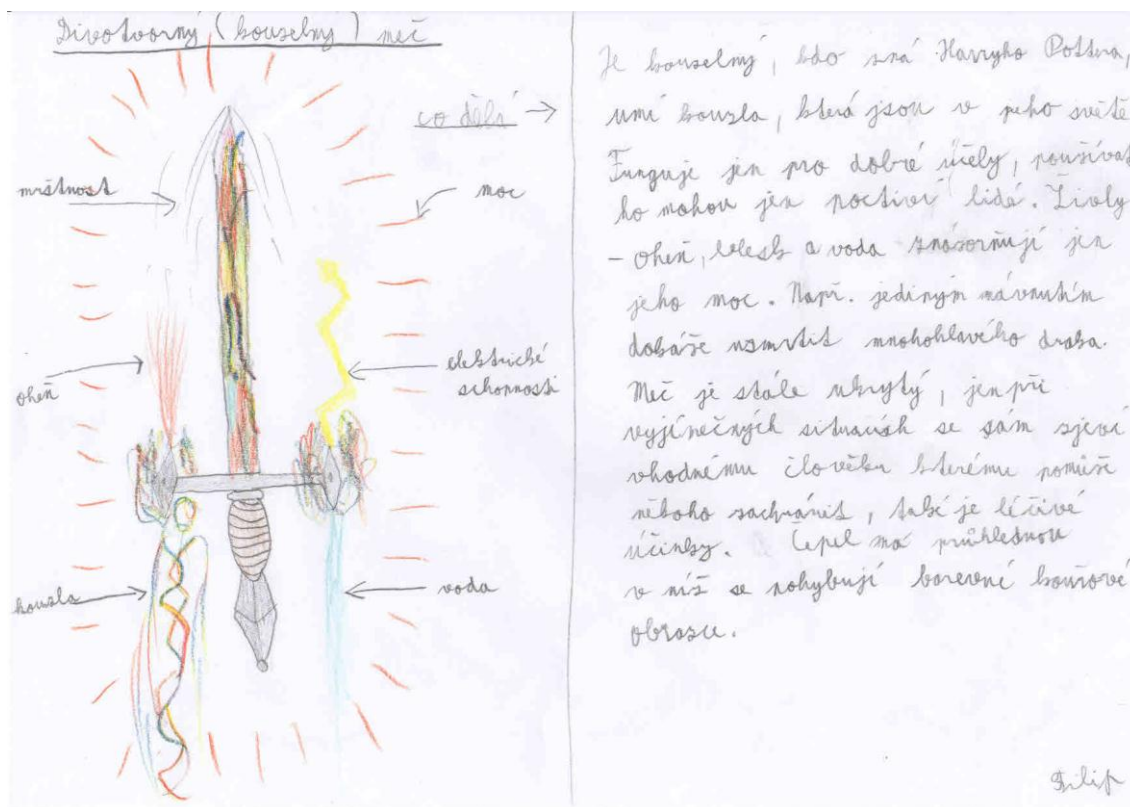 Divotvorný (kouzelný) meč
co dělá
mrštnost
moc
oheň
elektrické
schopnosti
kouzla
voda
Je kouzelný, kdo zná Harryho Pottra,
umí kouzla, která jsou v jeho světě
Funguje jen pro dobré účely, používat
ho mohou jen poctiví lidé. Živly
- oheň, blesk a voda znázorňují jen
jeho moc. Např. jediným mávnutím
dokáže usmrtit mnohohlavého draka.
Meč je stále ukrytý, jen při
vyjínečných situacích se sám zjeví
vhodnému člověku kterému pomůže
někoho zachránit, také je léčivé
účinky. Čepel má průhlednou
v níž se pohybují barevné kouřové
obrazce.
Filip